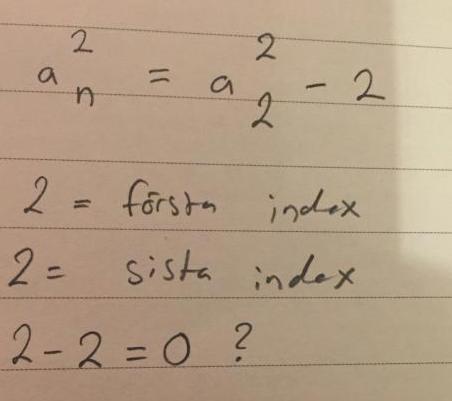 a²ₙ = a²₂ - 2
2 = första index
2 = sista index
2 - 2 = 0 ?